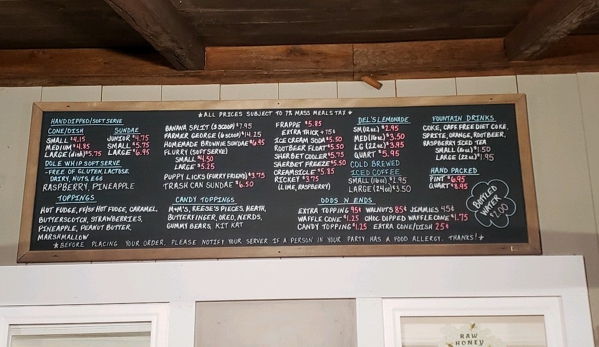 ★ALL PRICES SUBJECT TO 7% MASS MEALS TAX★
HANDDIPPED/SOFT SERVE
CONE/DISH
SMALL $4.15
MEDIUM $4.85
LARGE (dish) $5.75
SUNDAE
JUNIOR $4.75
SMALL $5.75
LARGE $6.95
DOLE WHIP SOFT SERVE
-FREE OF GLUTEN, LACTOSE,
DAIRY, NUTS, EGG
RASPBERRY, PINEAPPLE
TOPPINGS
HOT FUDGE, FF/SF HOT FUDGE, CARAMEL,
BUTTERSCOTCH, STRAWBERRIES,
PINEAPPLE, PEANUT BUTTER,
MARSHMALLOW
BANANA SPLIT (3 SCOOP) $7.95
FARMER GEORGE (6 SCOOP) $14.25
HOMEMADE BROWNIE SUNDAE $6.95
FLURRY (SOFT SERVE)
SMALL $4.50
LARGE $5.25
PUPPY LICKS (FURRY FRIEND) $3.75
TRASH CAN SUNDAE $6.50
CANDY TOPPINGS
M+M'S, REESE'S PIECES, HEATH,
BUTTERFINGER, OREO, NERDS,
GUMMY BEARS, KIT KAT
FRAPPE $5.85
EXTRA THICK +75¢
ICE CREAM SODA $5.50
ROOTBEER FLOAT $5.50
SHERBET COOLER $5.75
SHERBET FREEZE $5.50
CREAMSICLE $5.85
RICKEY $3.75
(LIME, RASPBERRY)
DEL'S LEMONADE
SM (12oz) $2.95
MED (16oz) $3.50
LG (22oz) $3.95
QUART $5.95
COLD BREWED
ICED COFFEE
SMALL (16oz) $2.95
LARGE (24oz) $3.50
ODDS N ENDS
EXTRA TOPPING 95¢ WALNUTS 85¢ JIMMIES 45¢
WAFFLE CONE $1.25 CHOC DIPPED WAFFLE CONE $1.75
CANDY TOPPING $1.25 EXTRA CONE/DISH 25¢
FOUNTAIN DRINKS
COKE, CAFF FREE DIET COKE,
SPRITE, ORANGE, ROOTBEER,
RASPBERRY ICED TEA
SMALL (16oz) $1.50
LARGE (22oz) $1.95
HAND PACKED
PINT $6.95
QUART $8.95
BOTTLED
WATER
$1.00
★BEFORE PLACING YOUR ORDER, PLEASE NOTIFY YOUR SERVER IF A PERSON IN YOUR PARTY HAS A FOOD ALLERGY. THANKS!★
RAW
HONEY